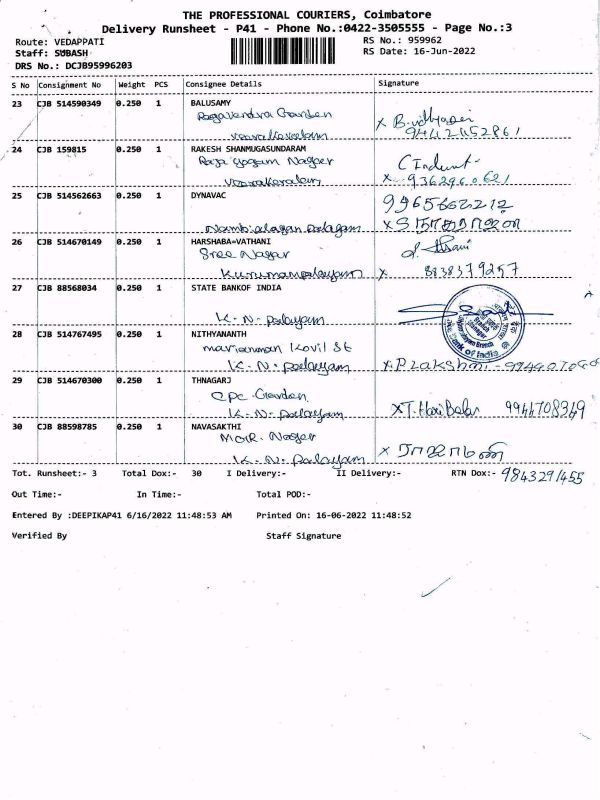 THE PROFESSIONAL COURIERS, Coimbatore
Delivery Runsheet - P41 - Phone No.:0422-3505555 - Page No.:3
Route: VEDAPPATI RS No.: 959962
Staff: SUBASH RS Date: 16-Jun-2022
DRS No.: DCJB95996203
S No Consignment No Weight PCS Consignee Details Signature
23 CJB 514590349 0.250 1 BALUSAMY
Ragavendra Garden
Veerakeralam x B. 9442452861
24 CJB 159815 0.250 1 RAKESH SHANMUGASUNDARAM
Raja yogam Nager
Veerakeralam x 9362960621
25 CJB 514562663 0.250 1 DYNAVAC 9965662212
Nambialagan palayam x
26 CJB 514670149 0.250 1 HARSHABA=VATHANI
Sree Nagar
Kurumampalayam x 8838379257
27 CJB 88568034 0.250 1 STATE BANKOF INDIA
K. N. palayam
28 CJB 514767495 0.250 1 NITHYANANTH
mariamman Kovil St
K. N. palayam x P. Lakshmi -
29 CJB 514670300 0.250 1 THNAGARJ
CPC Garden
K. N. palayam x T. Hari Balar 9944708349
30 CJB 88598785 0.250 1 NAVASAKTHI
Nager
K. N. palayam x ராஜாமணி
Tot. Runsheet:- 3 Total Dox:- 30 I Delivery:- II Delivery:- RTN Dox:- 9843291455
Out Time:- In Time:- Total POD:-
Entered By :DEEPIKAP41 6/16/2022 11:48:53 AM Printed On: 16-06-2022 11:48:52
Verified By Staff Signature